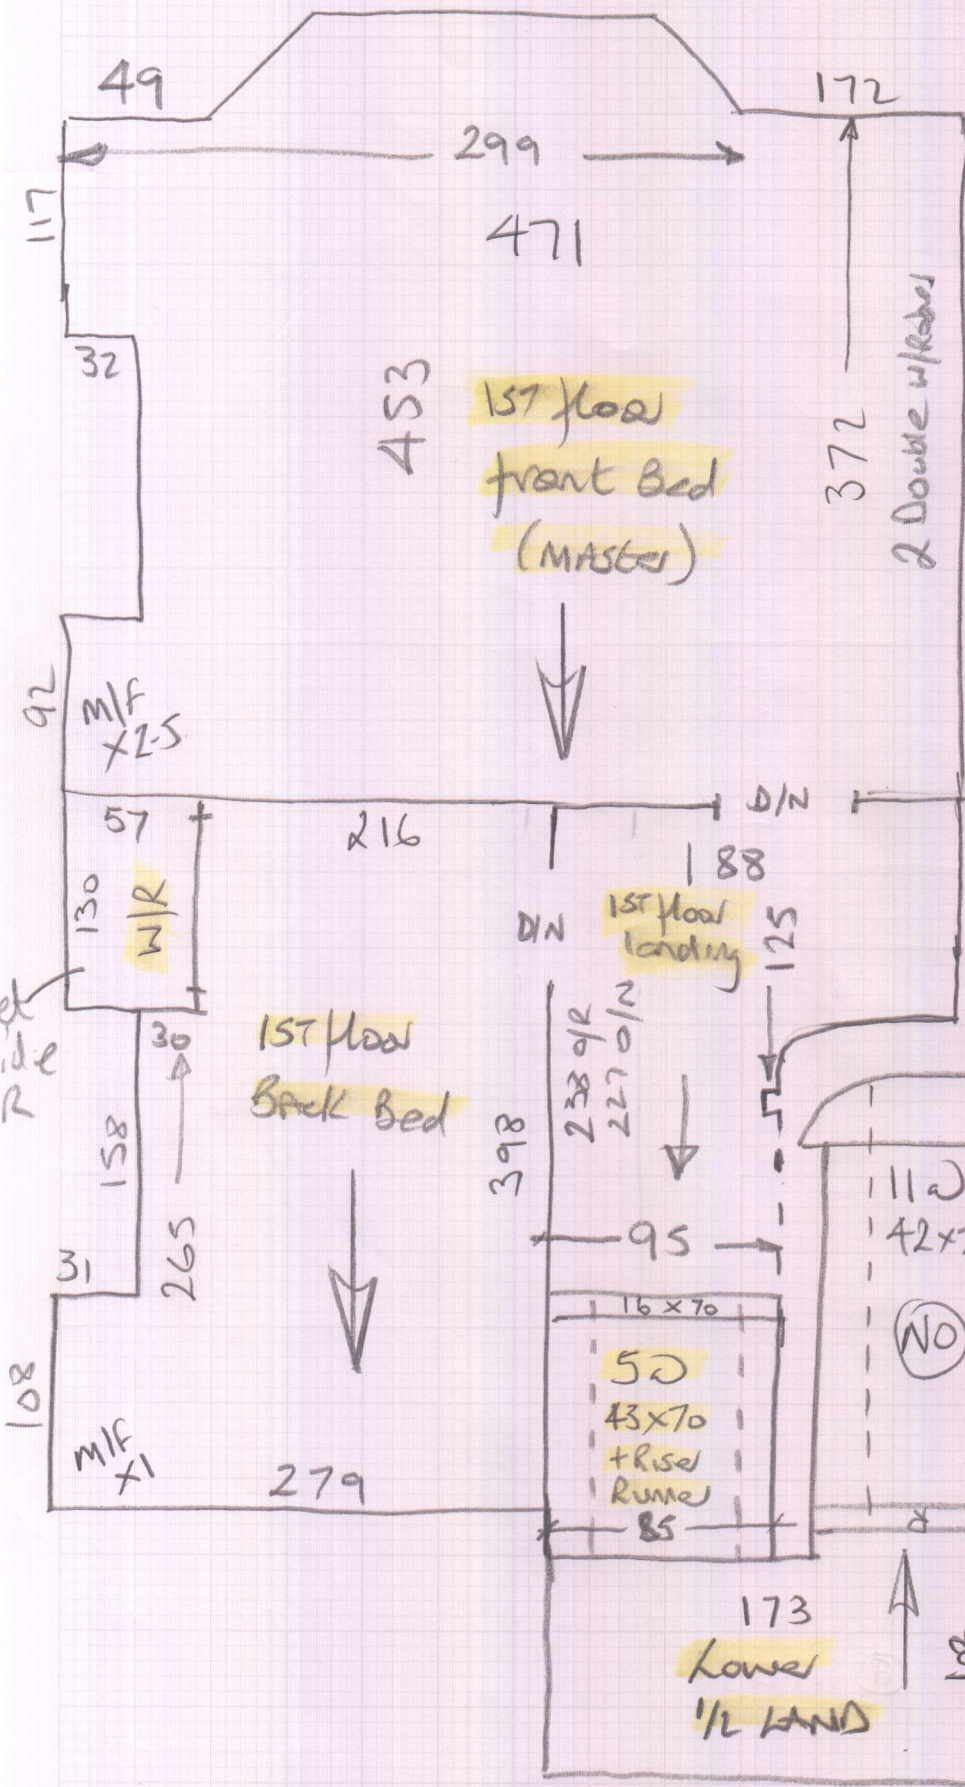 49
172
299
117
471
32
453
1ST floor
front Bed
(MASTER)
372
2 Double w/Robes
92
M/F
x2.5
D/N
57
216
188
130
W/R
D/N
1ST floor
landing
125
30
1ST floor
Back Bed
233 O/R
227 O/N
158
398
265
95
31
16 x 70
108
5
43x70
+Riser
Runner
85
11
42x
NO
M/F
x1
279
173
Lower
1/2 LAND